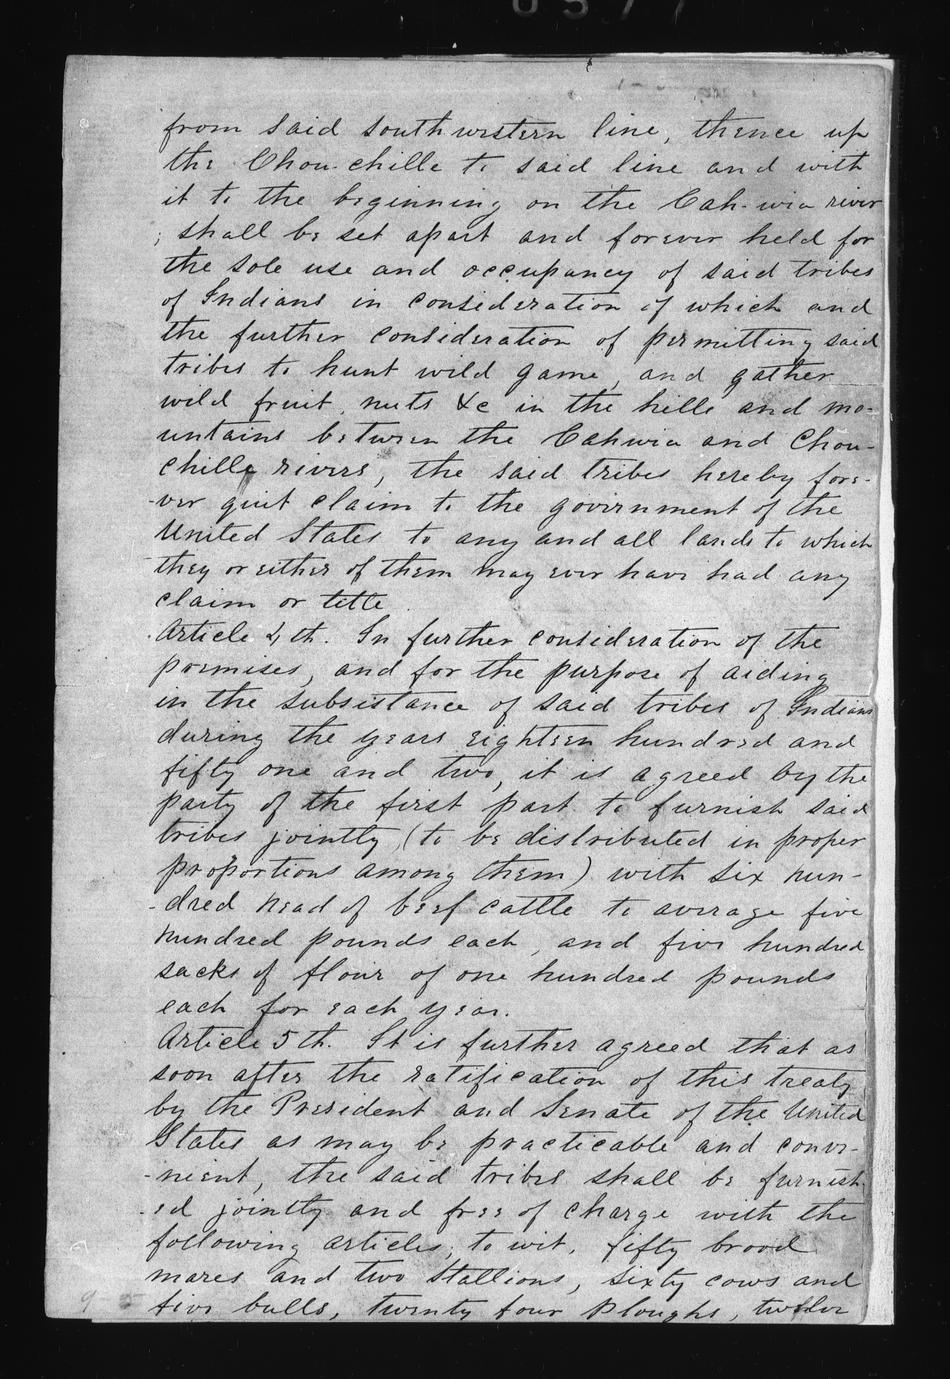 from said southwestern line, thence up
the Chou-chille to said line and with
it to the beginning on the Cah-wia river
; shall be set apart and forever held for
the sole use and occupancy of said tribes
of Indians in consideration of which and
the further consideration of permitting said
tribes to hunt wild game, and gather
wild fruit, nuts &c in the hills and mo-
untains between the Cahwia and Chou-
chille rivers, the said tribes hereby fore-
-ver quit claim to the government of the
United States to any and all lands to which
they or either of them may ever have had any
claim or title.
Article 4th. In further consideration of the
premises, and for the purpose of aiding
in the subsistance of said tribes of Indians
during the years eighteen hundred and
fifty one and two, it is agreed by the
party of the first part to furnish said
tribes jointly (to be distributed in proper
proportions among them) with six hun-
-dred head of beef cattle to average five
hundred pounds each, and five hundred
sacks of flour of one hundred pounds
each for each year.
Article 5th. It is further agreed that as
soon after the ratification of this treaty
by the President and Senate of the United
States as may be practicable and conve-
-nient, the said tribes shall be furnish
-ed jointly and free of charge with the
following articles, to wit, fifty brood
mares and two stallions, sixty cows and
five bulls, twenty four ploughs, twelve